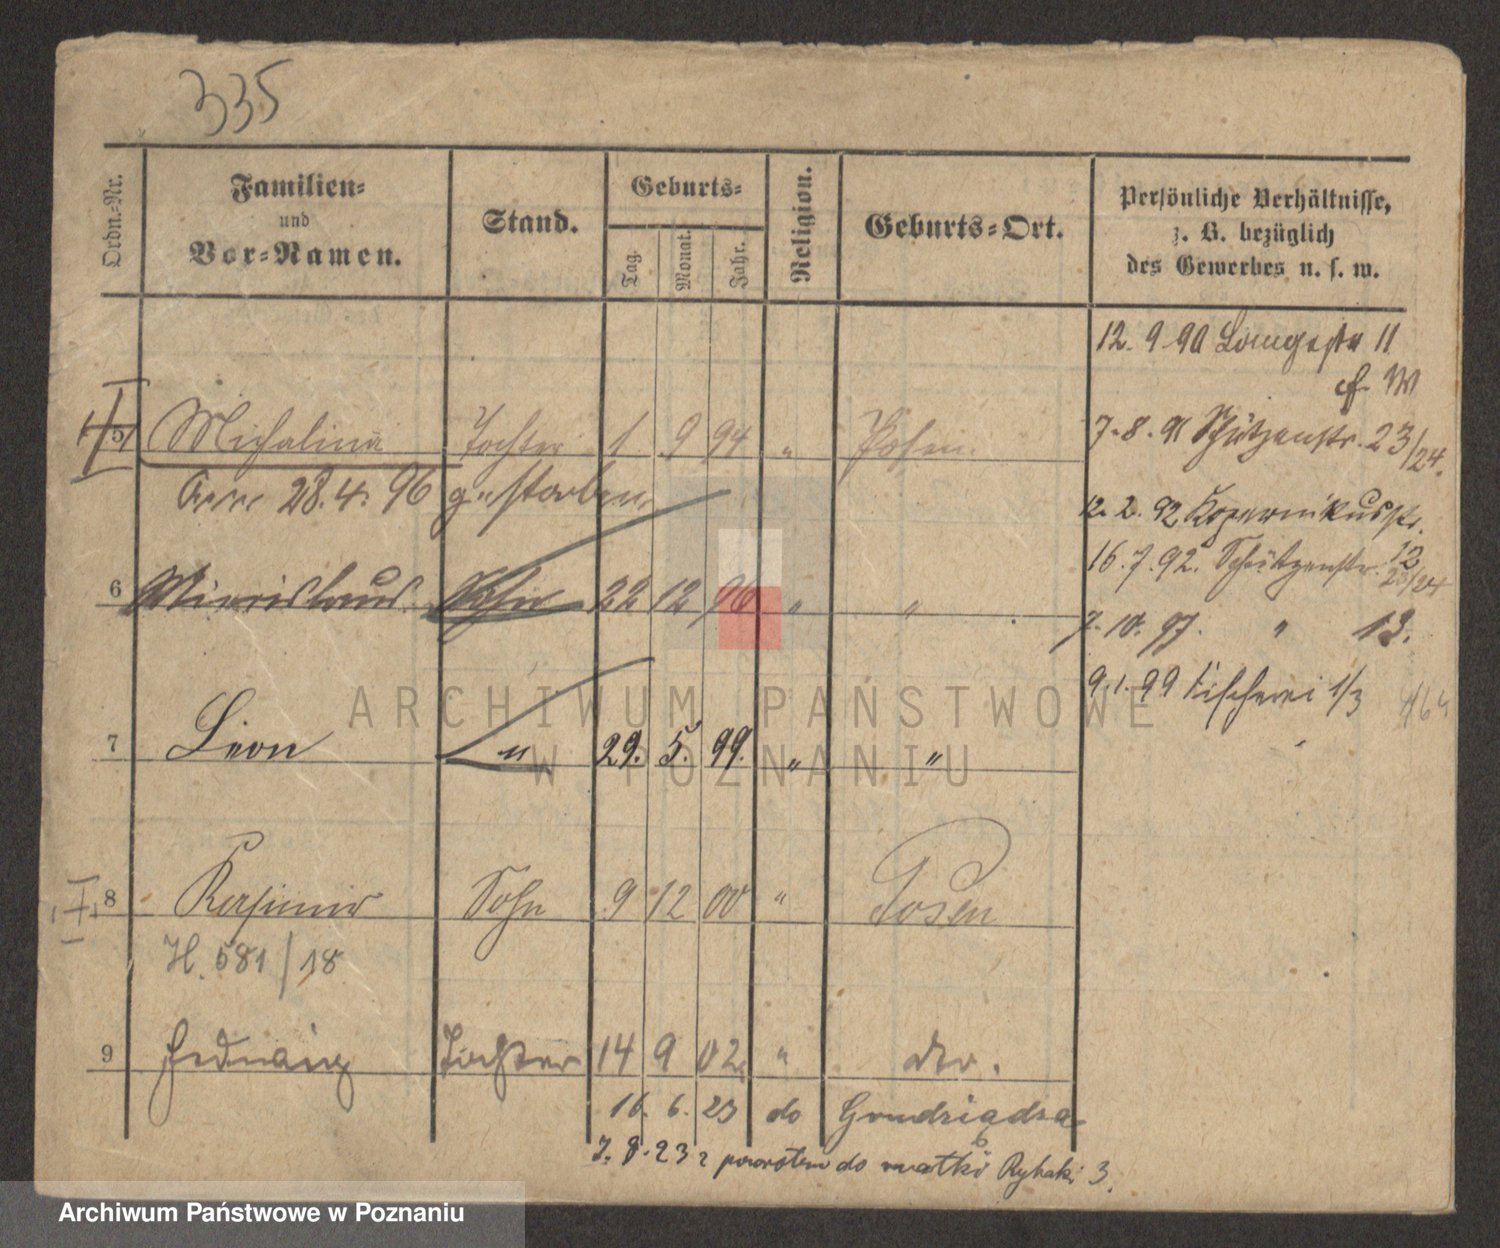 335
Ordn.-Nr.
Familien-
und
Vor-Namen.
Stand.
Geburts-
Tag.
Monat.
Jahr.
Religion.
Geburts-Ort.
Persönliche Verhältnisse,
z. B. bezüglich
des Gewerbes u. s. w.
12. 9 90 Langestr 11
7. 8. 91 Schützenstr. 23/24.
12. 2. 92 Kopernikusstr. 12
16. 7. 92. Schützenstr. 23/24
7. 10. 97. " 13.
9. 1. 99 Fischerei 1/3
5 Michalina Tochter 1 9 94 " Posen.
Am 28. 4. 96 gestorben
6 Miecislaus Sohn 22 12 96 " "
7 Leon " 29. 5. 99. " "
8 Kasimir Sohn 9 12 00 " Posen
H. 581/18
9 Hedwig Tochter 14 9 02 " dto.
16. 6. 23 do Grudziądza
7. 8. 23 z powrotem do matki Rybaki 3.
ARCHIWUM PAŃSTWOWE
W POZNANIU
Archiwum Państwowe w Poznaniu